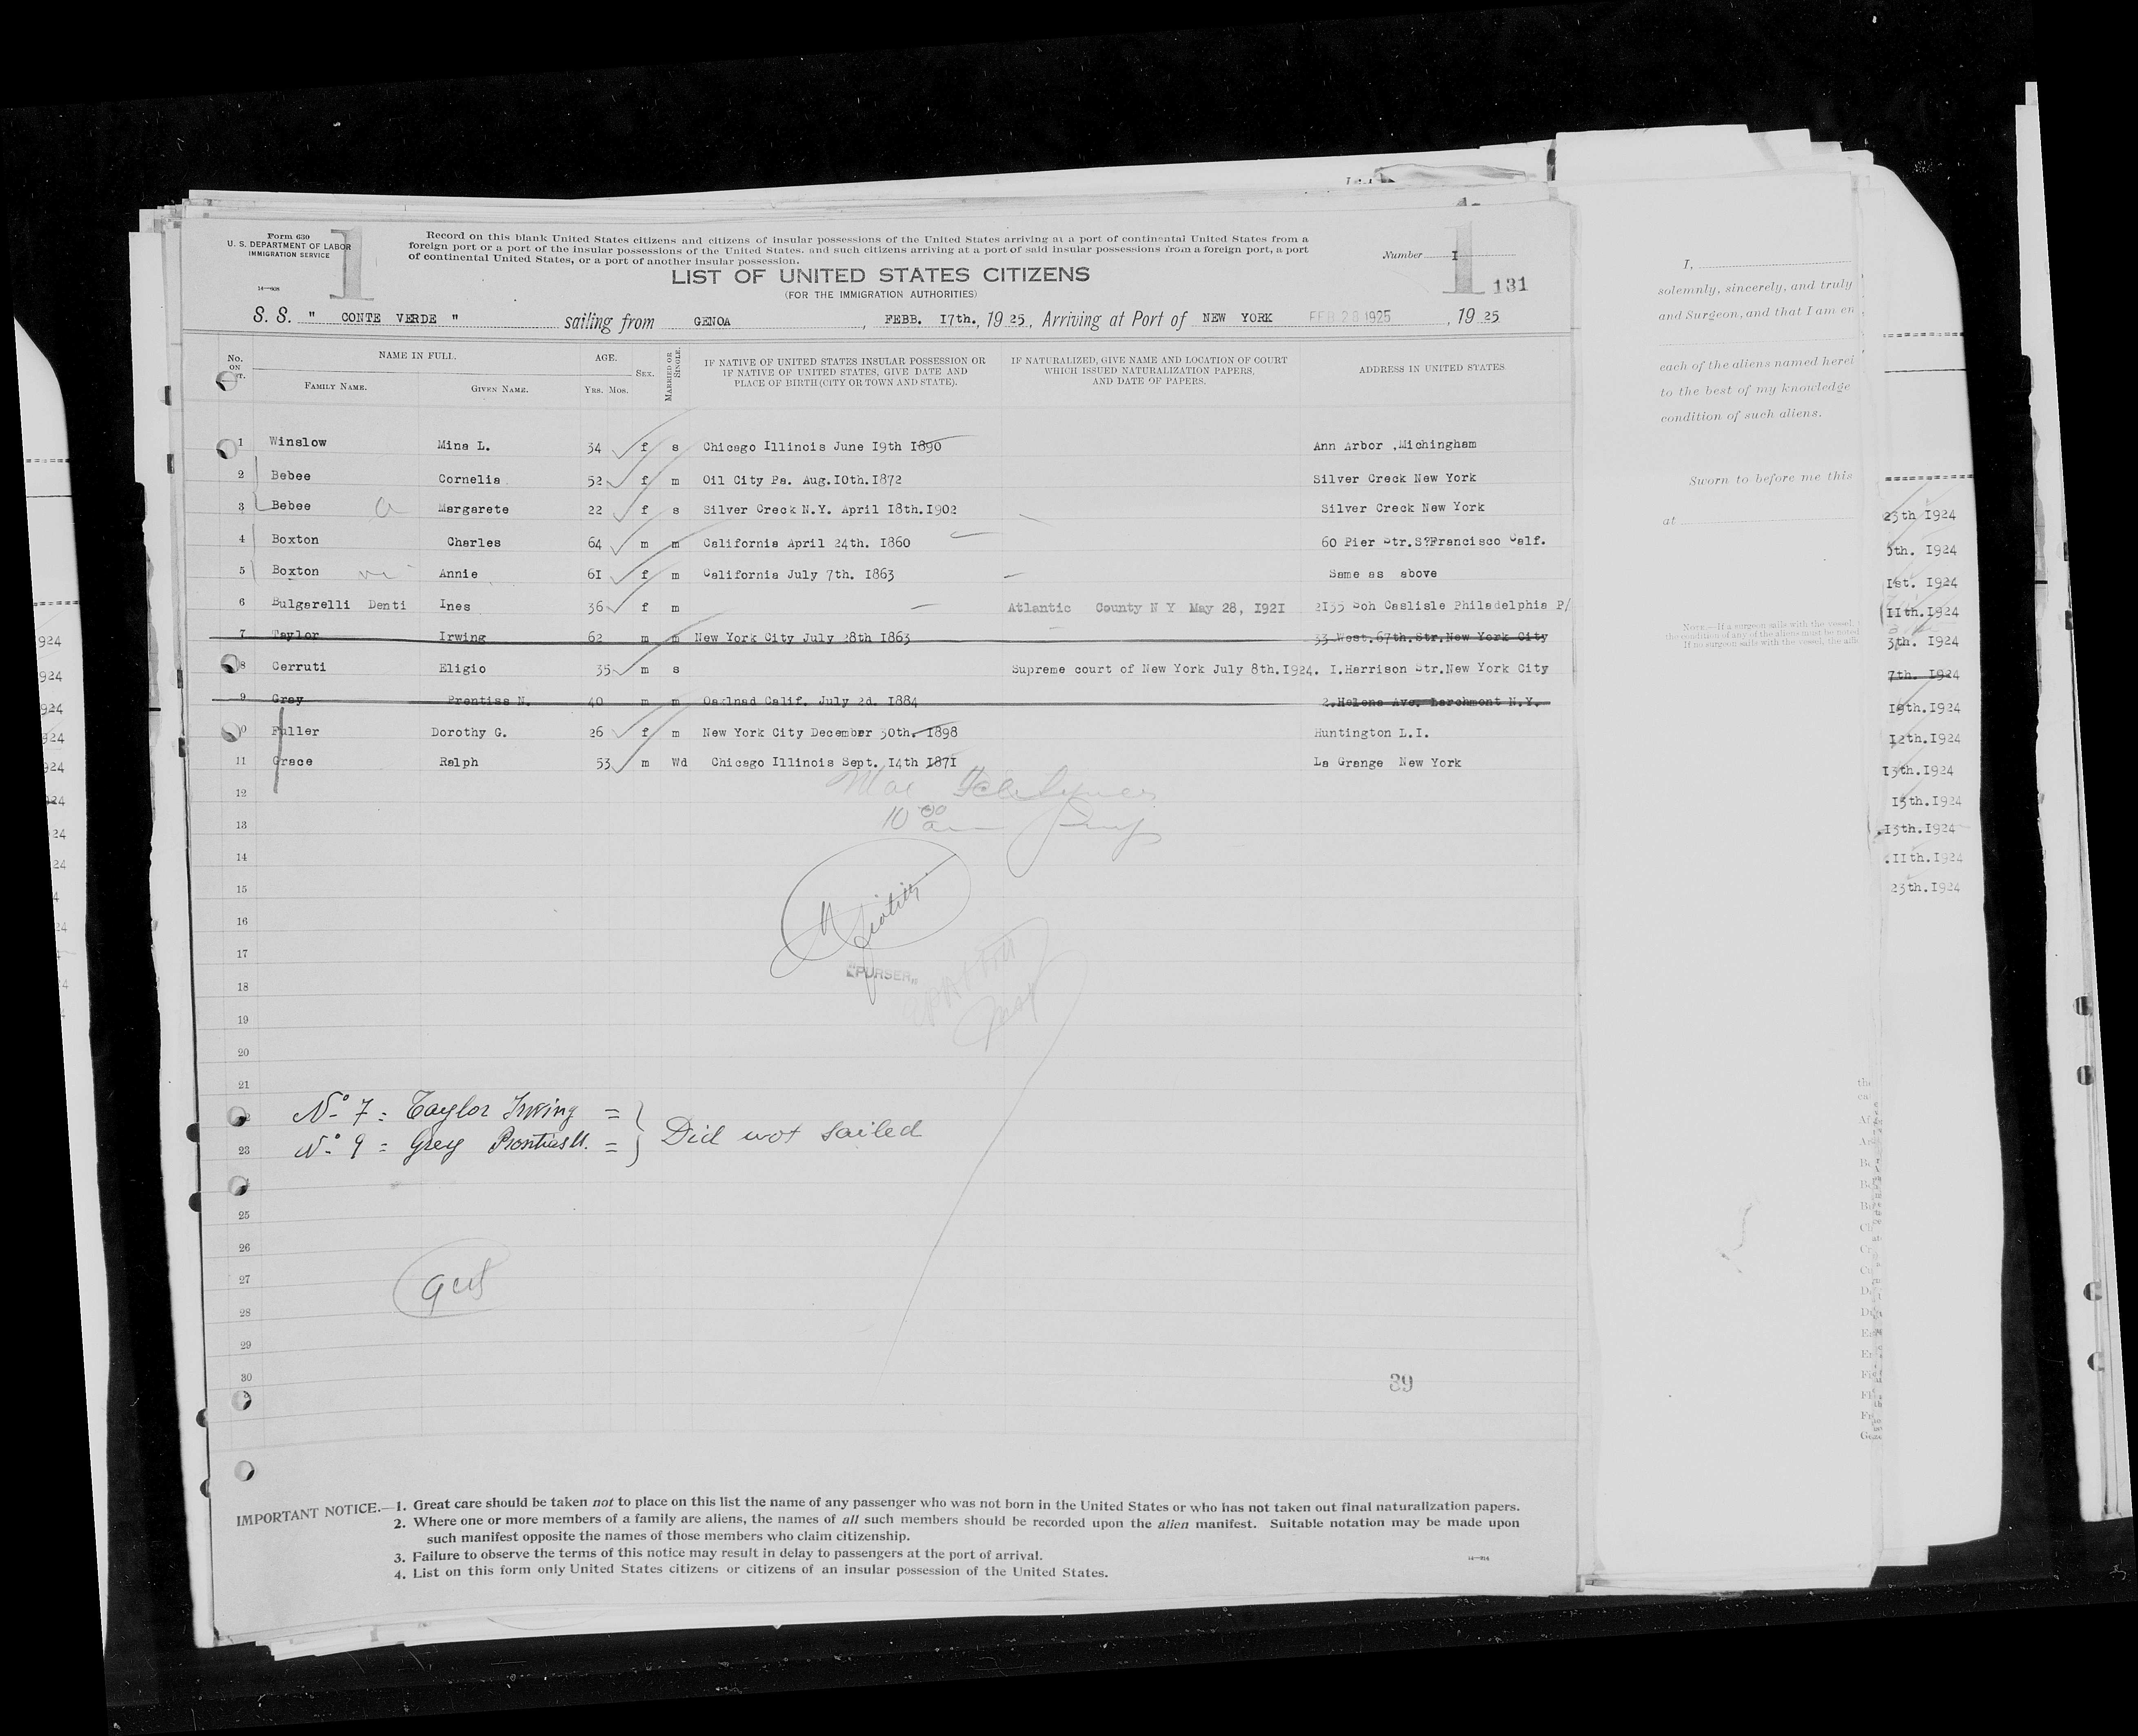 Form 630
U. S. DEPARTMENT OF LABOR
IMMIGRATION SERVICE
14—808
1
Record on this blank United States citizens and citizens of insular possessions of the United States arriving at a port of continental United States from a
foreign port or a port of the insular possessions of the United States, and such citizens arriving at a port of said insular possessions from a foreign port, a port
of continental United States, or a port of another insular possession.
Number I
1
131
LIST OF UNITED STATES CITIZENS
(FOR THE IMMIGRATION AUTHORITIES)
S. S. " CONTE VERDE " sailing from GENOA, FEBB. I7th., 19 25, Arriving at Port of NEW YORK FEB 28 1925, 19 25
No. ON NAME IN FULL. AGE. SEX. MARRIED OR SINGLE. IF NATIVE OF UNITED STATES INSULAR POSSESSION OR IF NATIVE OF UNITED STATES, GIVE DATE AND PLACE OF BIRTH (CITY OR TOWN AND STATE). IF NATURALIZED, GIVE NAME AND LOCATION OF COURT WHICH ISSUED NATURALIZATION PAPERS, AND DATE OF PAPERS. ADDRESS IN UNITED STATES.
FAMILY NAME. GIVEN NAME. YRS. MOS.
1 Winslow Mina L. 34 f s Chicago Illinois June I9th I890 Ann Arbor ,Michingham
2 Bebee Cornelia 52 f m Oil City Pa. Aug.IOth.I872 Silver Creck New York
3 Bebee Margarete 22 f s Silver Creck N.Y. April I8th.I902 Silver Creck New York
4 Boxton Charles 64 m m California April 24th. I860 60 Pier Str.S?Francisco Calf.
5 Boxton Annie 6I f m California July 7th. I863 Same as above
6 Bulgarelli Denti Ines 36 f m Atlantic County N Y May 28, I92I 2I35 Soh Caslisle Philadelphia P/
7 Taylor Irwing 62 m m New York City July 28th I863 33 West.67th.Str.New York City
8 Cerruti Eligio 35 m s Supreme court of New York July 8th.I924. I.Harrison Str.New York City
9 Gray Prentiss N. 40 m m Oaklnad Calif. July 2d. I884 2.Helena Ave. Larchmont N.Y.
0 Fuller Dorothy G. 26 f m New York City December 30th. I898 Huntington L.I.
11 Grace Ralph 53 m Wd Chicago Illinois Sept. I4th I87I La Grange New York
12
13
14
15
16
17
"PURSER"
18
19
20
21
2 Nº 7 = Taylor Irwing =
23 Nº 9 = Grey Prentiss N. = } Did not sailed
25
26
27
28
29
30
39
IMPORTANT NOTICE.—1. Great care should be taken not to place on this list the name of any passenger who was not born in the United States or who has not taken out final naturalization papers.
2. Where one or more members of a family are aliens, the names of all such members should be recorded upon the alien manifest. Suitable notation may be made upon
such manifest opposite the names of those members who claim citizenship.
3. Failure to observe the terms of this notice may result in delay to passengers at the port of arrival.
4. List on this form only United States citizens or citizens of an insular possession of the United States.
I,
solemnly, sincerely, and truly
and Surgeon, and that I am en
each of the aliens named herei
to the best of my knowledge
condition of such aliens.
Sworn to before me this
at
NOTE.—If a surgeon sails with the vessel,
the condition of any of the aliens must be noted
If no surgeon sails with the vessel, the affi
23th I924
5th. I924
Ist. I924
IIth.I924
3th. I924
7th. I924
I9th.I924
I2th.I924
I3th.I924
I3th.I924
.I3th.I924
.IIth.I924
23th.I924
924
924
924
924
924
24
24
24
4
24